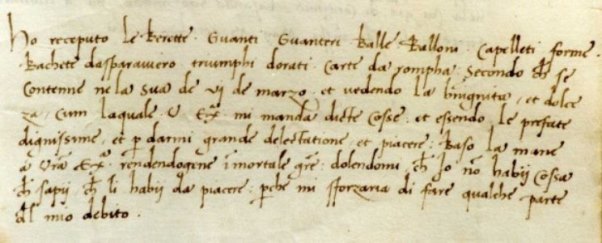 Ho receputo le berette Guanti Guanteri Balle Balloni Capelleti forme
Bachete dasparaviero triumphi dorati Carte da rompha Secondo ch se
Contenne ne la sua de vi de marzo, et vedendo la binignita, et dolce
za, cum laquale V. Ex. mi manda dicte Cosse, et essendo le prefate
dignissime, et p darmi grande delectatione, et piacere, Baso la mane
a Vra Ex. rendendogene imortale gre, dolendomi, ch Io no habij Cossa
ch sapij, ch li habij da piacere, pche mi sforzaria di fare qualche parte
dl mio debito.